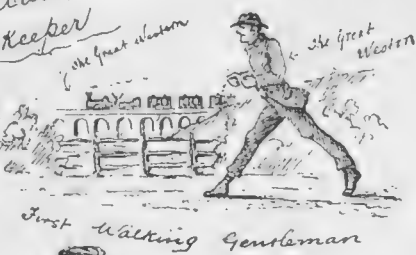 Keeper
The Great Western
The Great
Western
First Walking Gentleman